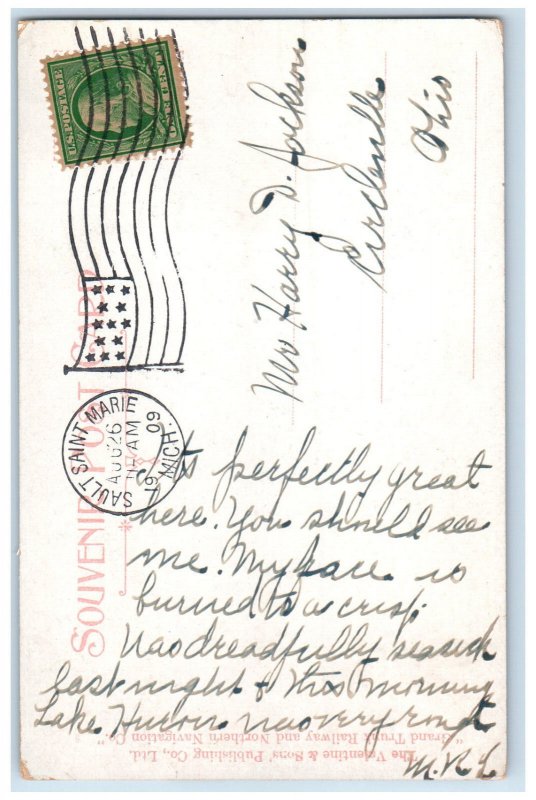 U.S. POSTAGE
ONE CENT
SAULT SAINT MARIE
AUG 26
11 AM
19 09
MICH.
SOUVENIR POST CARD
Mr Harry D. Jackson
Circleville
Ohio
It's perfectly great
here. You should see
me. My face is
burned to a crisp.
Was dreadfully seasick
last night & this morning
Lake Huron was very rough
M. R. L
The Valentine & Sons' Publishing Co., Ltd.
"Grand Trunk Railway and Northern Navigation Co"